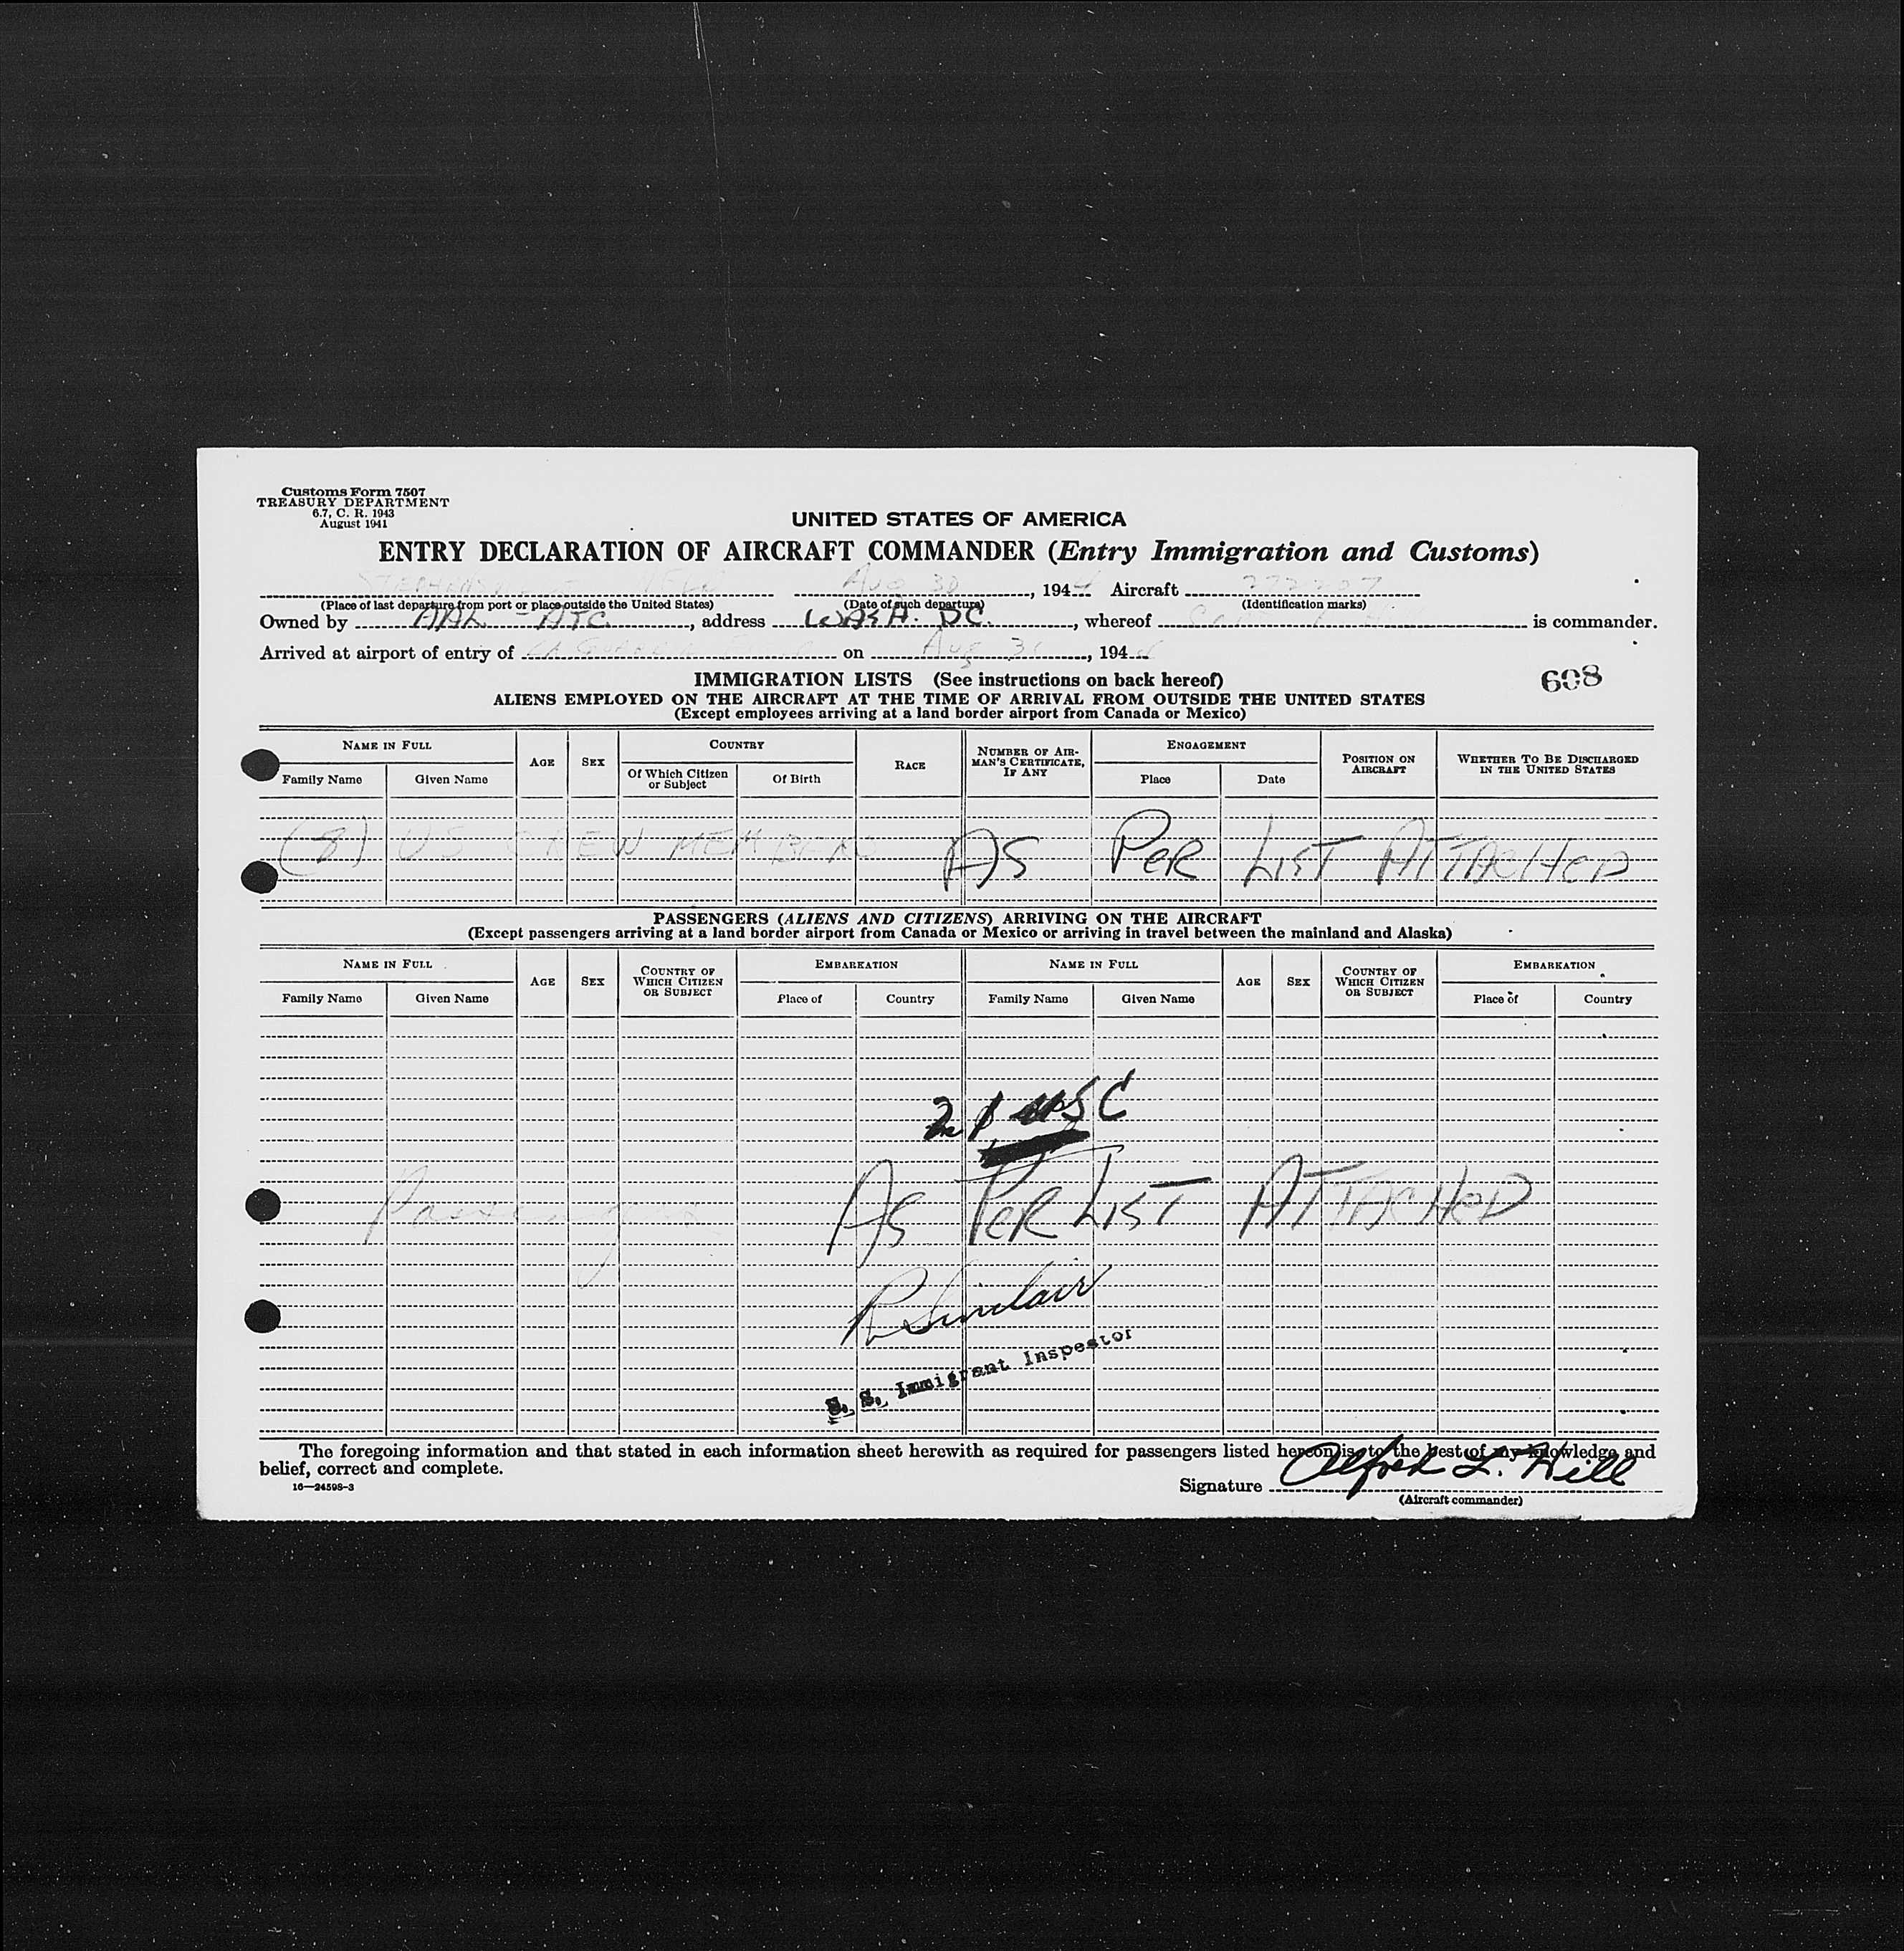 Customs Form 7507
TREASURY DEPARTMENT
6.7, C. R. 1943
August 1941
UNITED STATES OF AMERICA
ENTRY DECLARATION OF AIRCRAFT COMMANDER (Entry Immigration and Customs)
Aug 30, 194 Aircraft
(Place of last departure from port or place outside the United States) (Date of such departure) (Identification marks)
Owned by AAL - ATC, address WASH. DC., whereof is commander.
Arrived at airport of entry of LA GUARDIA on Aug 31, 194
608
IMMIGRATION LISTS (See instructions on back hereof)
ALIENS EMPLOYED ON THE AIRCRAFT AT THE TIME OF ARRIVAL FROM OUTSIDE THE UNITED STATES
(Except employees arriving at a land border airport from Canada or Mexico)
NAME IN FULL AGE SEX COUNTRY RACE NUMBER OF AIRMAN'S CERTIFICATE, IF ANY ENGAGEMENT POSITION ON AIRCRAFT WHETHER TO BE DISCHARGED IN THE UNITED STATES
Family Name Given Name Of Which Citizen or Subject Of Birth Place Date
(8) US CREW MEMBERS AS PER LIST ATTACHED
PASSENGERS (ALIENS AND CITIZENS) ARRIVING ON THE AIRCRAFT
(Except passengers arriving at a land border airport from Canada or Mexico or arriving in travel between the mainland and Alaska)
NAME IN FULL AGE SEX COUNTRY OF WHICH CITIZEN OR SUBJECT EMBARKATION NAME IN FULL AGE SEX COUNTRY OF WHICH CITIZEN OR SUBJECT EMBARKATION
Family Name Given Name Place of Country Family Name Given Name Place of Country
USC
Passengers AS PER LIST ATTACHED
R Sinclair
U. S. Immigrant Inspector
The foregoing information and that stated in each information sheet herewith as required for passengers listed hereon is, to the best of my knowledge and
belief, correct and complete.
16—24598-3
Signature Alfred L. Hill
(Aircraft commander)